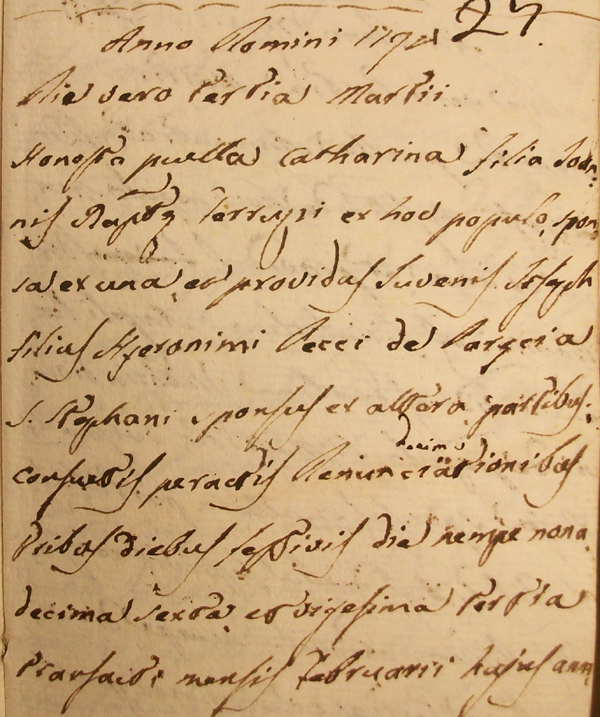 27
Anno Domini 179
Die vero tertia Martii
Honesta puella Catharina filia Joan-
nis Baptæ ex hoc populo, spon-
sa ex una, et providus Juvenis Joseph
filius Hyeronimi Pecci de Parecia
S. Stephani sponsus ex altera partibus.
consuetis peractis Denunciationibus
tribus diebus festivis die nempe nona
decima sexta, et vigesima tertia
transacti mensis Februarii hujus anni